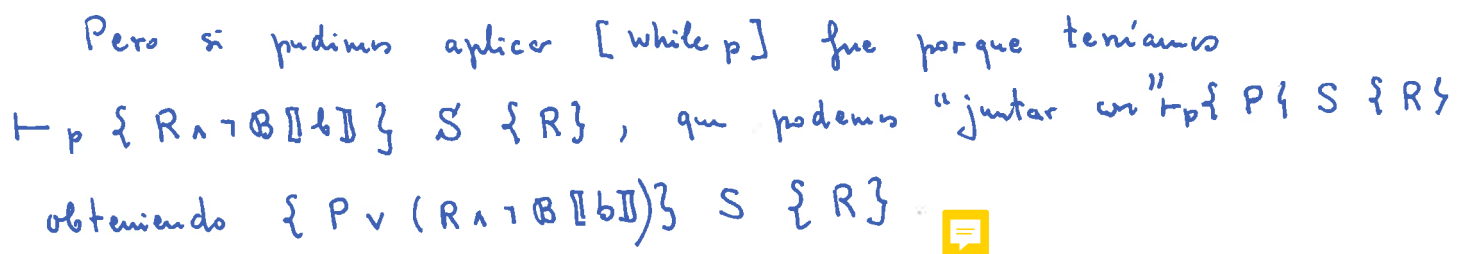 Pero si pudimos aplicar [while p] fue porque teníamos
⊢p { R ∧ ¬ 𝓑⟦b⟧ } S { R }, que podemos "juntar con" ⊢p { P } S { R }
obteniendo { P ∨ ( R ∧ ¬ 𝓑⟦b⟧) } S { R }.